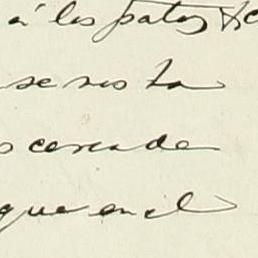 á los patos &c
se nos ha
s cerca de
que en el